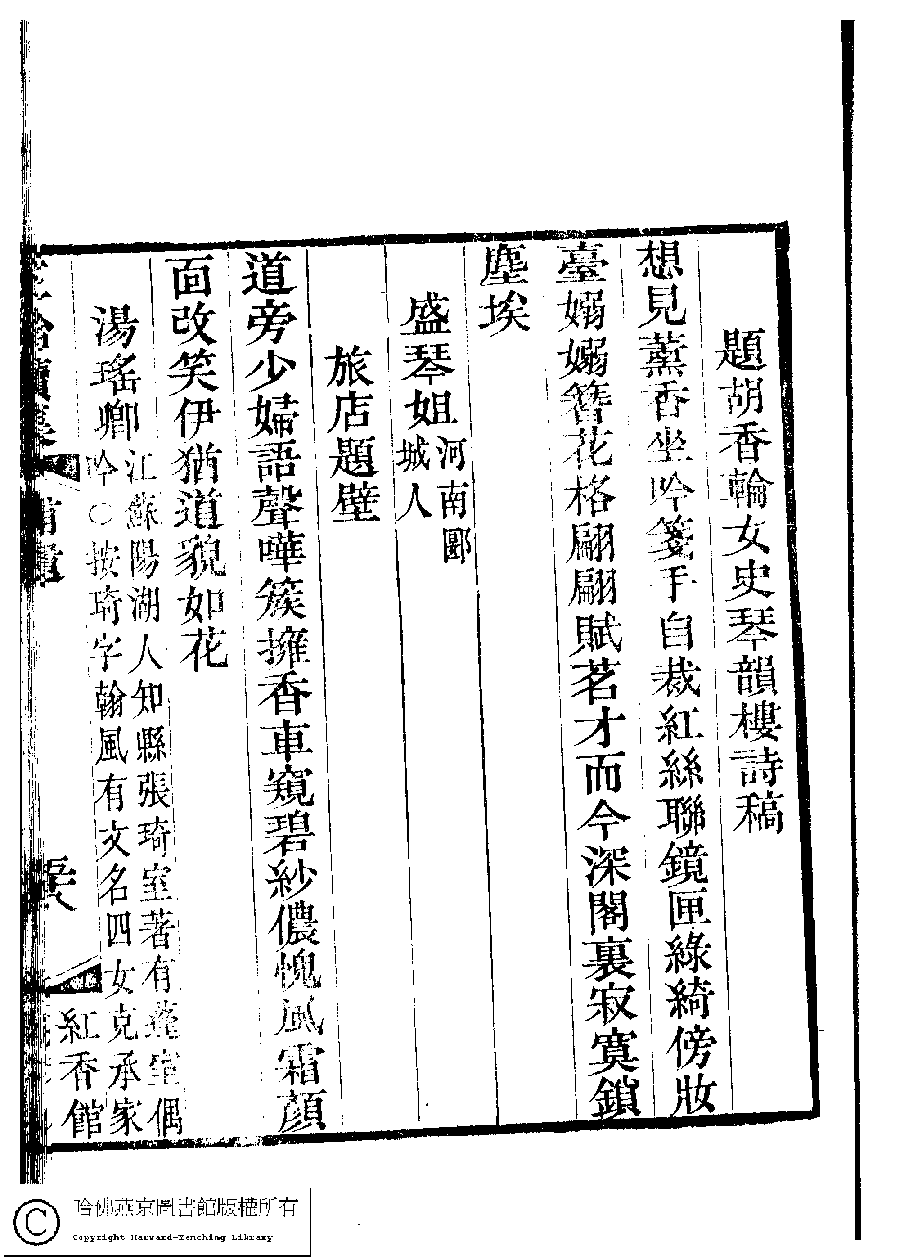 題胡香輪女史琴韻樓詩稿
想見薰香坐吟箋手自裁紅絲聯鏡匣綠綺傍妝
臺嫋嫋簪花格翩翩賦茗才而今深閣裏寂寞鎖
塵埃
盛琴姐河南郾
城人
旅店題壁
道旁少婦語聲嘩簇擁香車窺碧紗儂愧風霜顏
面改笑伊猶道貌如花
湯瑤卿江蘇陽湖人知縣張琦室著有蓬室偶
吟○按琦字翰風有文名四女克承家
續集
紅香館
哈佛燕京圖書館版權所有
Copyright Harvard-Yenching Library